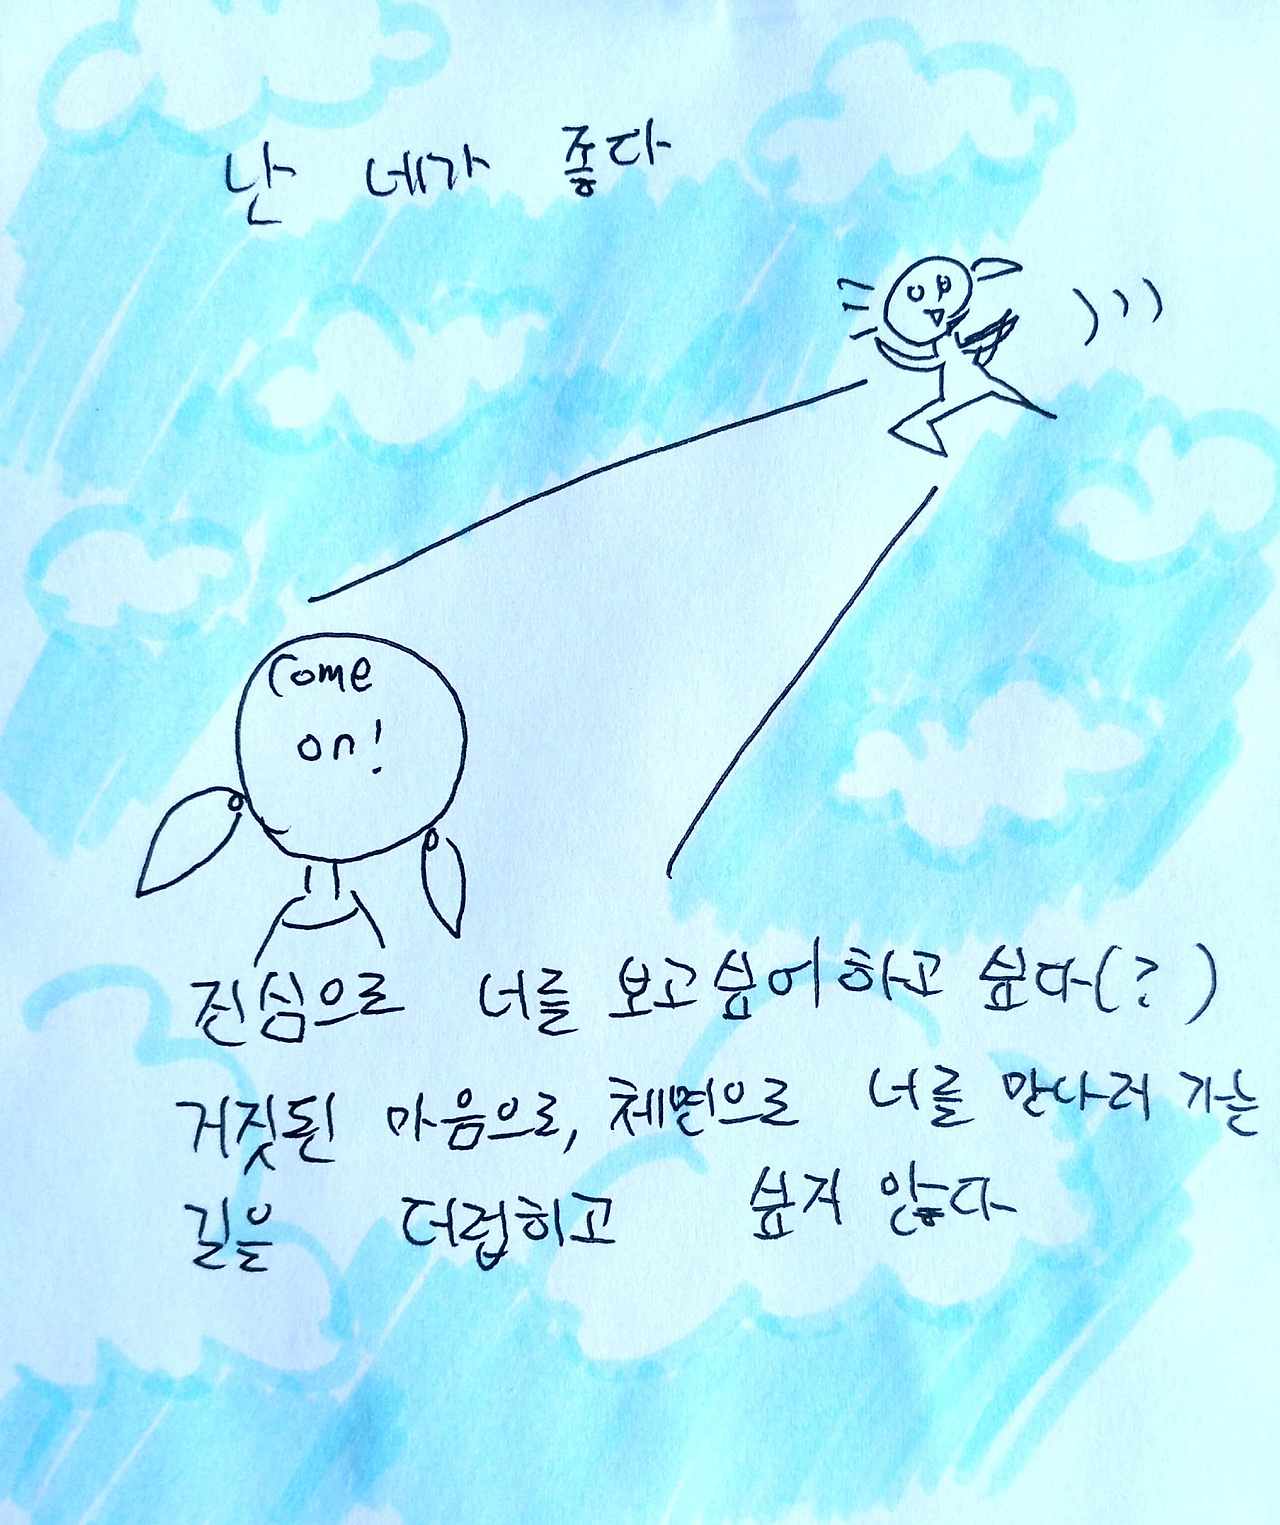 난 네가 좋다
Come
on!
진심으로 너를 보고싶어하고 싶다(?)
거짓된 마음으로, 체면으로 너를 만나러 가는
길을 더럽히고 싶지 않다